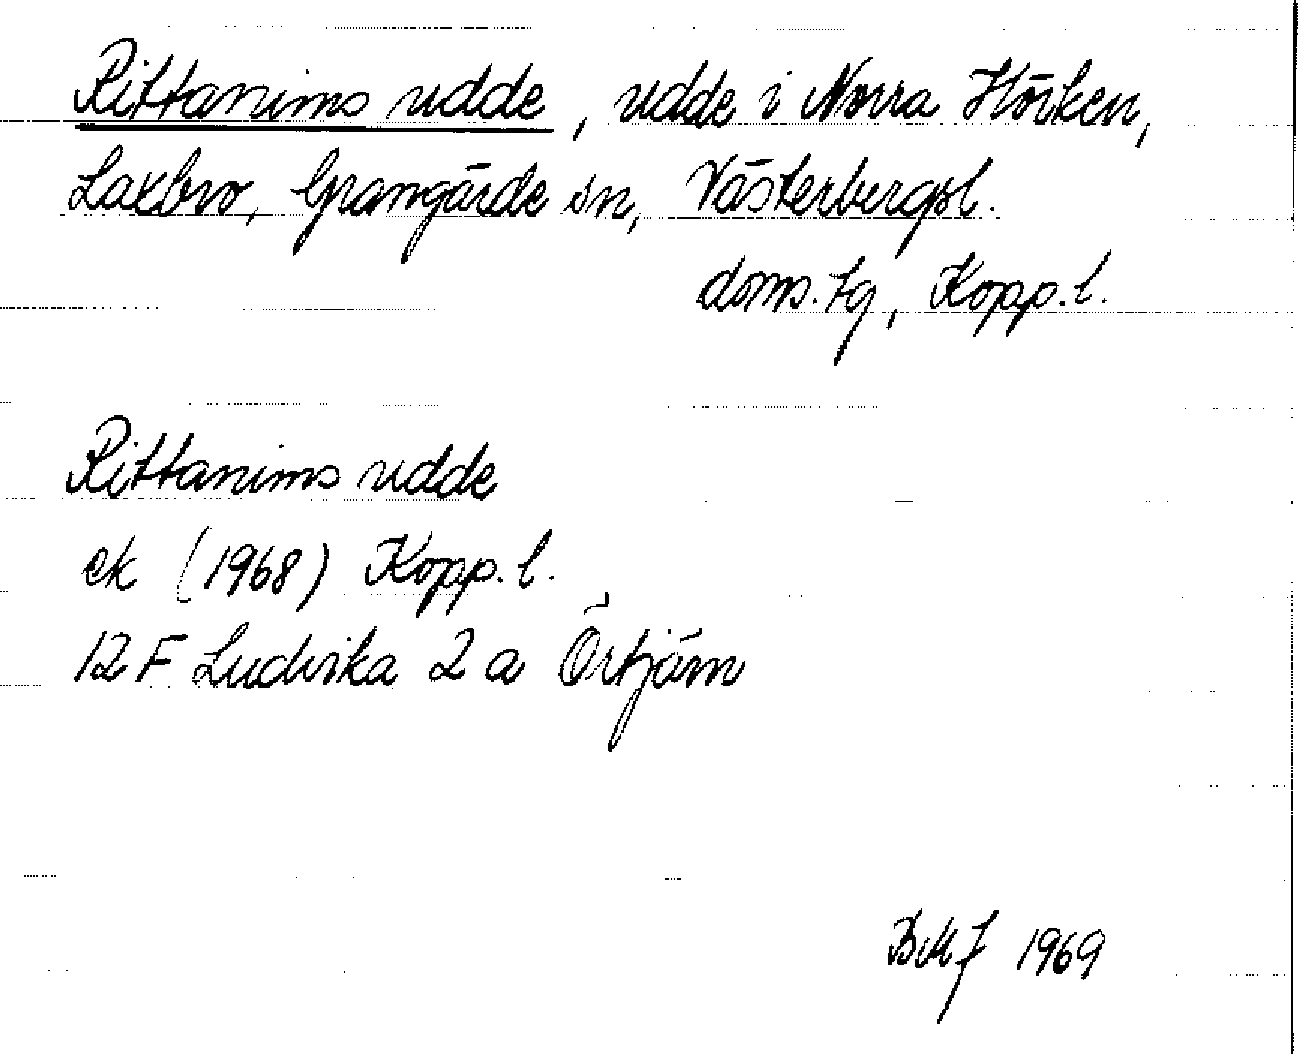 Rittanims udde, udde i Norra Hörken,
Laxbro, Grangärde sn, Västerbergsl.
doms. tg, Kopp. l.
Rittanims udde
ek (1968) Kopp. l.
12 F Ludvika 2 a Örtjärn
BMJ 1969